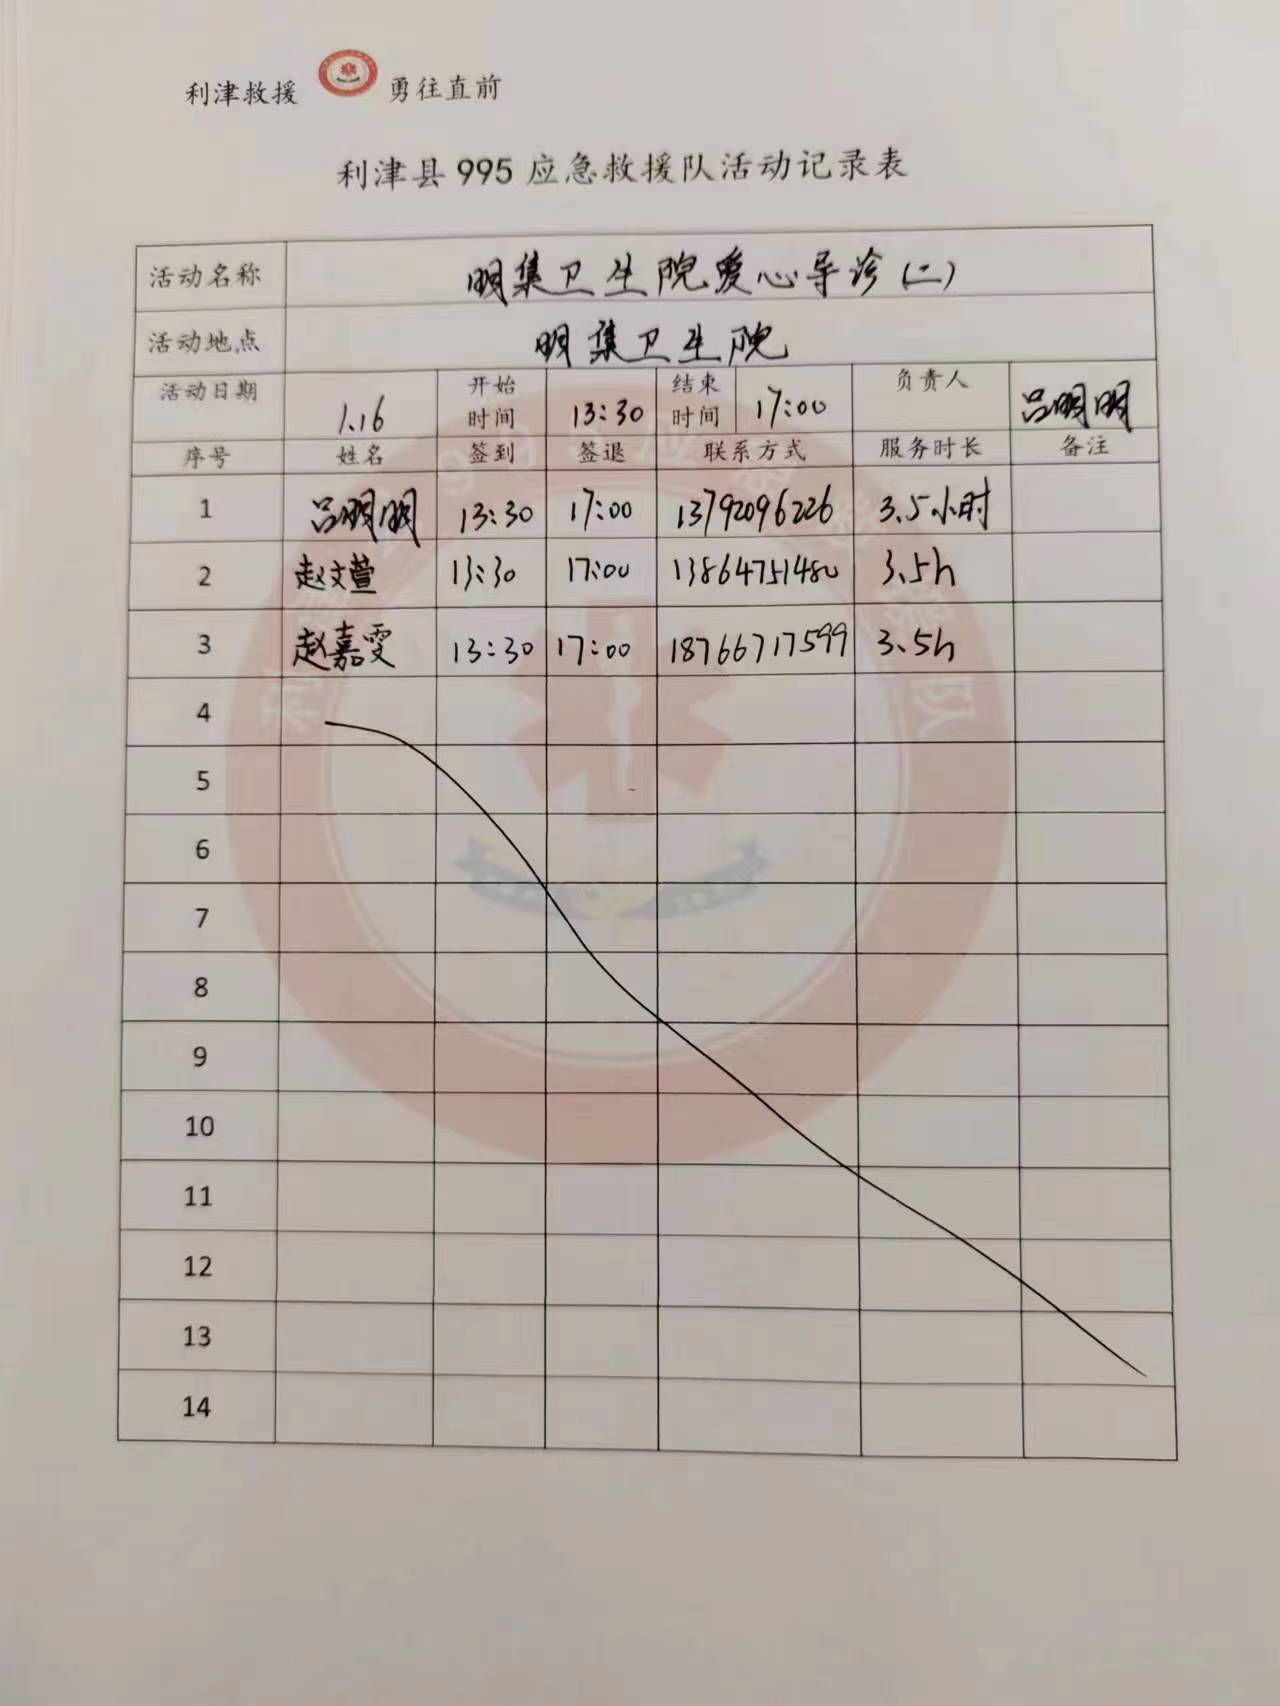 利津救援 勇往直前
利津县 995 应急救援队活动记录表
活动名称 明集卫生院爱心导诊(二)
活动地点 明集卫生院
活动日期 1.16 开始时间 13:30 结束时间 17:00 负责人 吕明明
序号 姓名 签到 签退 联系方式 服务时长 备注
1 吕明明 13:30 17:00 13792096226 3.5小时
2 赵文萱 13:30 17:00 13864751480 3.5h
3 赵嘉雯 13:30 17:00 18766717599 3.5h
4
5
6
7
8
9
10
11
12
13
14